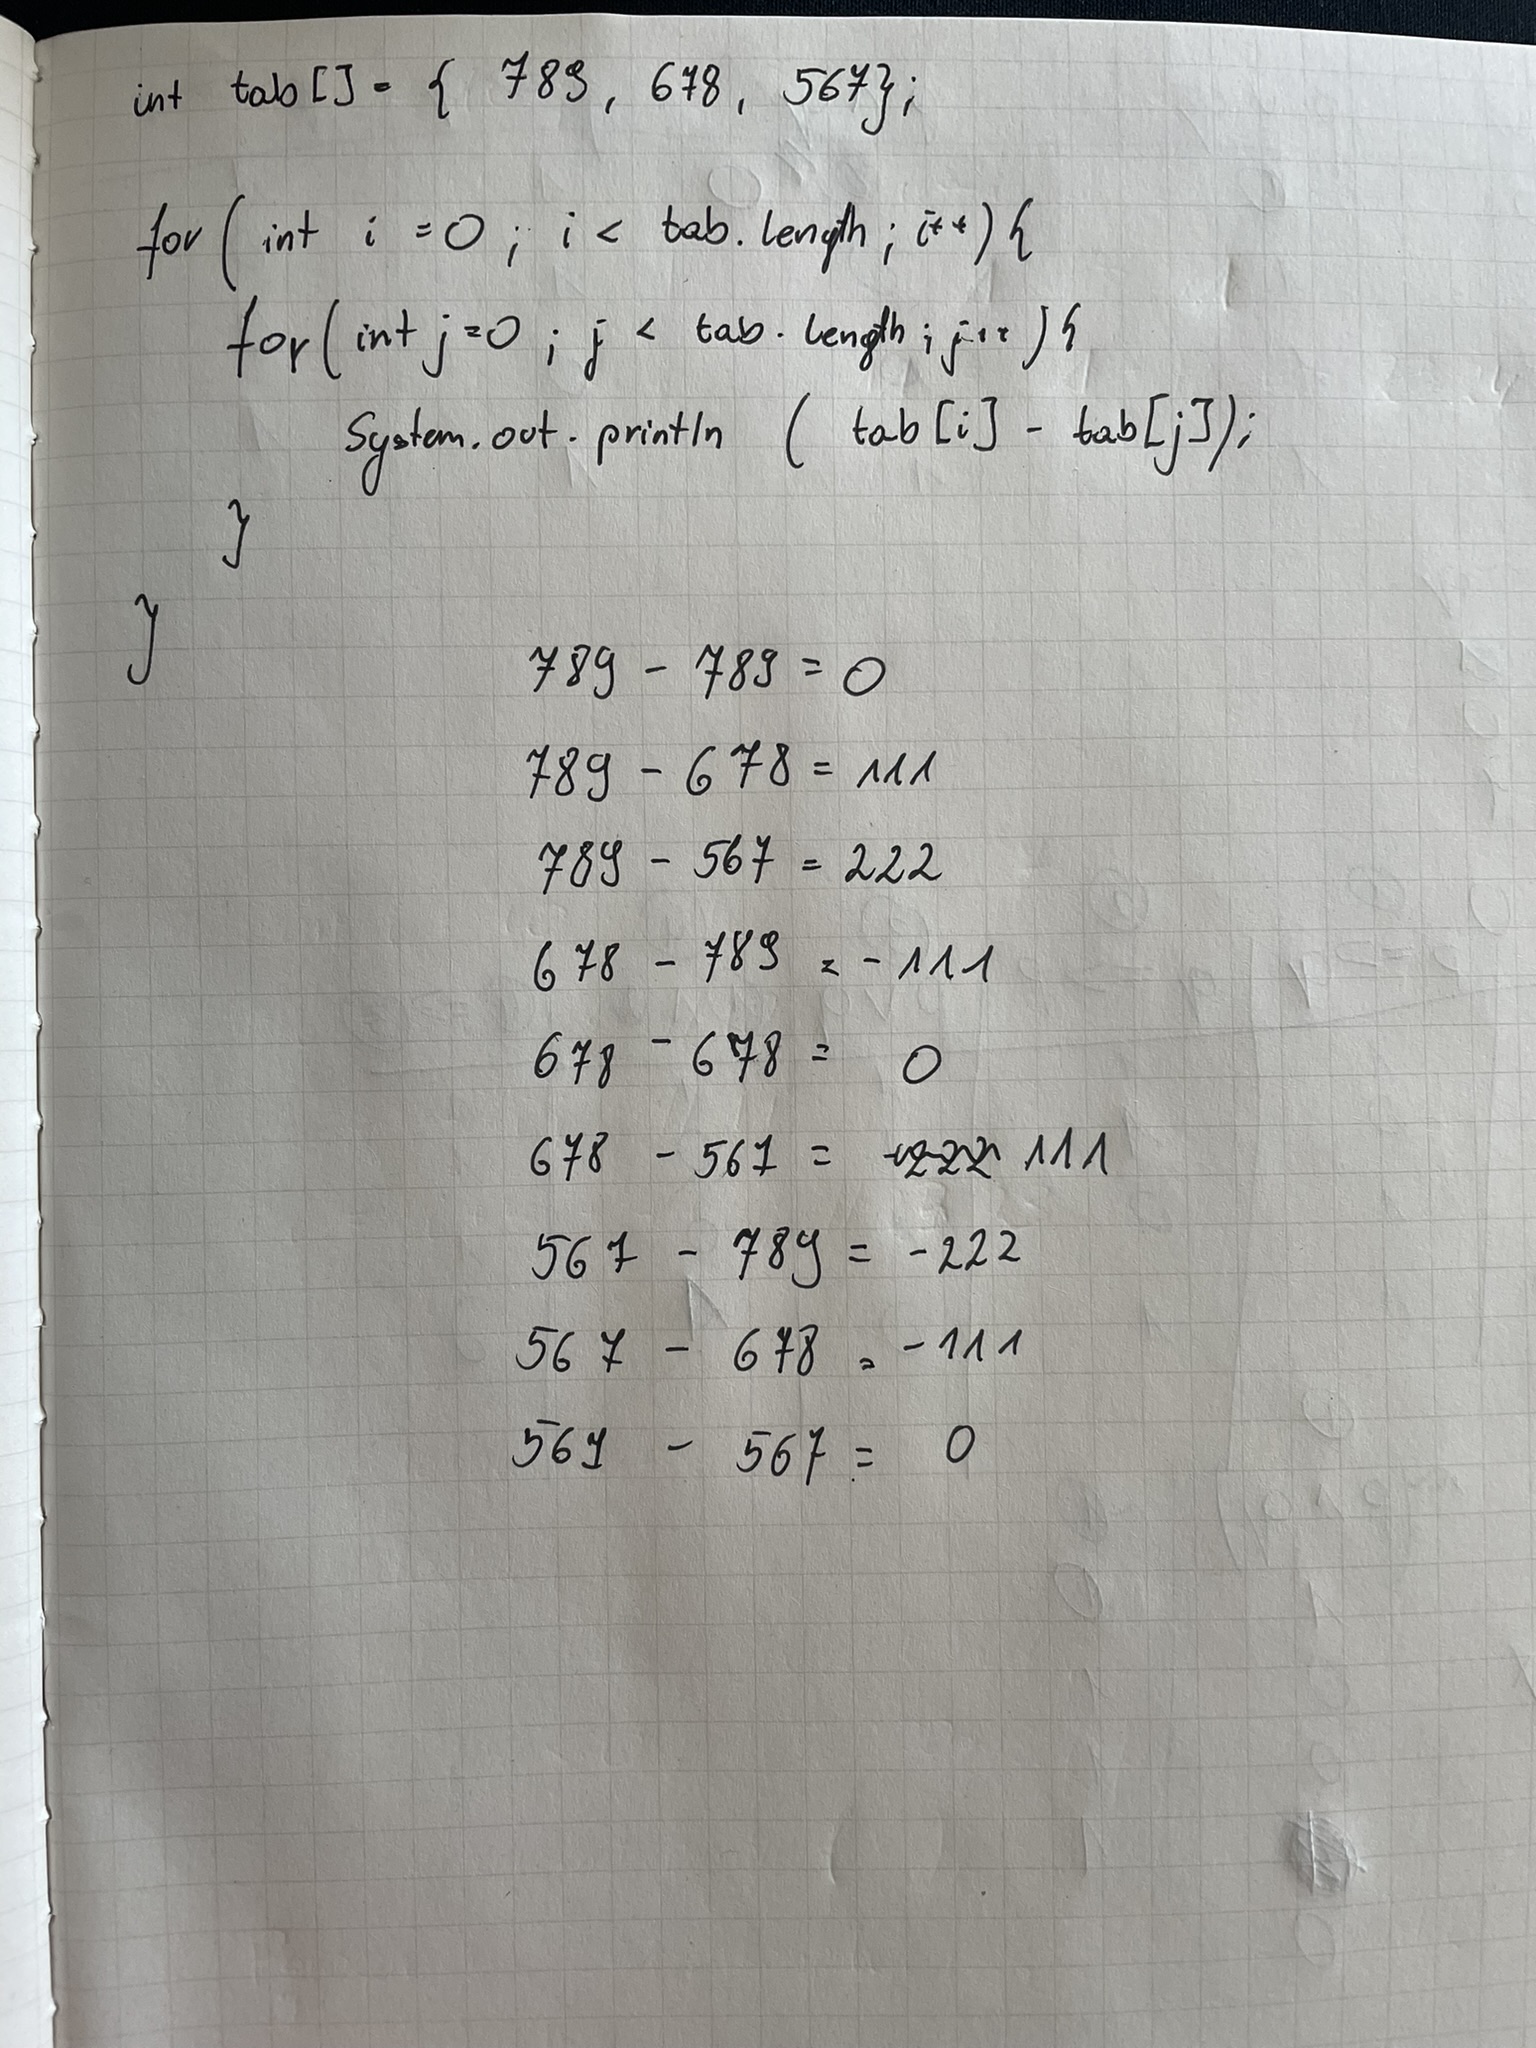 int tab[] = { 789, 678, 567};
for ( int i = 0 ; i < tab.length ; i++ ) {
for ( int j = 0 ; j < tab.length ; j++ ) {
System.out.println ( tab[i] - tab[j]);
}
}
789 - 789 = 0
789 - 678 = 111
789 - 567 = 222
678 - 789 = -111
678 - 678 = 0
678 - 567 = 111
567 - 789 = -222
567 - 678 = -111
567 - 567 = 0